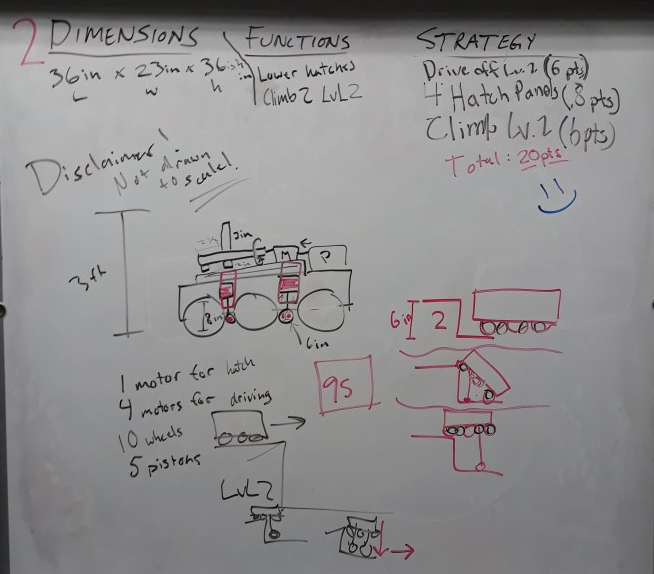 2 DIMENSIONS
36in x 23in x 36ish in
L w h
FUNCTIONS
Lower hatches
Climb 2 LvL2
STRATEGY
Drive off Lv. 2 (6 pts)
4 Hatch Panels (8 pts)
Climb Lv. 2 (6pts)
Total: 20pts
Disclaimer!
Not drawn
to scale!
3ft
3in
M
P
8in
6in
1 motor for hatch
4 motors for driving
10 wheels
5 pistons
95
6in
2
LvL2